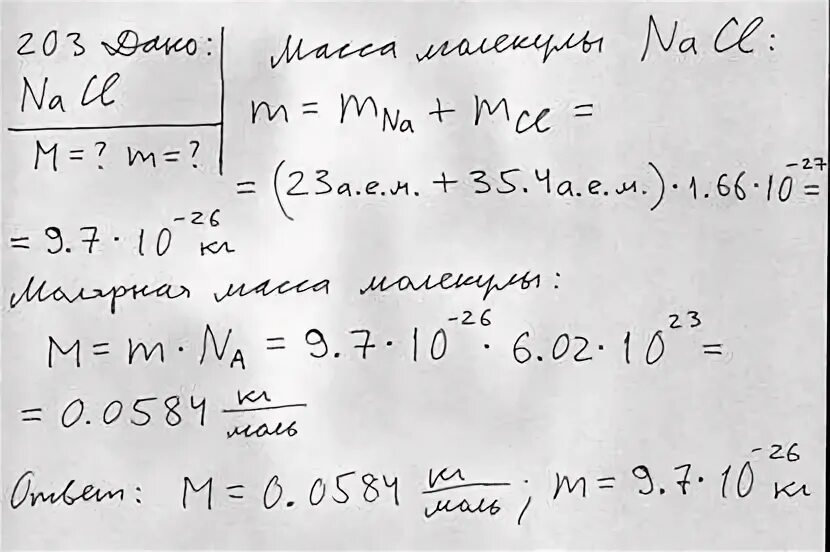 203 Дано:
NaCl
M = ? m = ?
Масса молекулы NaCl:
m = m_Na + m_Cl =
= (23а.е.м. + 35.4а.е.м.) · 1.66 · 10^-27 =
= 9.7 · 10^-26 кг
Молярная масса молекулы:
M = m · N_A = 9.7 · 10^-26 · 6.02 · 10^23 =
= 0.0584 кг/моль
Ответ: M = 0.0584 кг/моль; m = 9.7 · 10^-26 кг